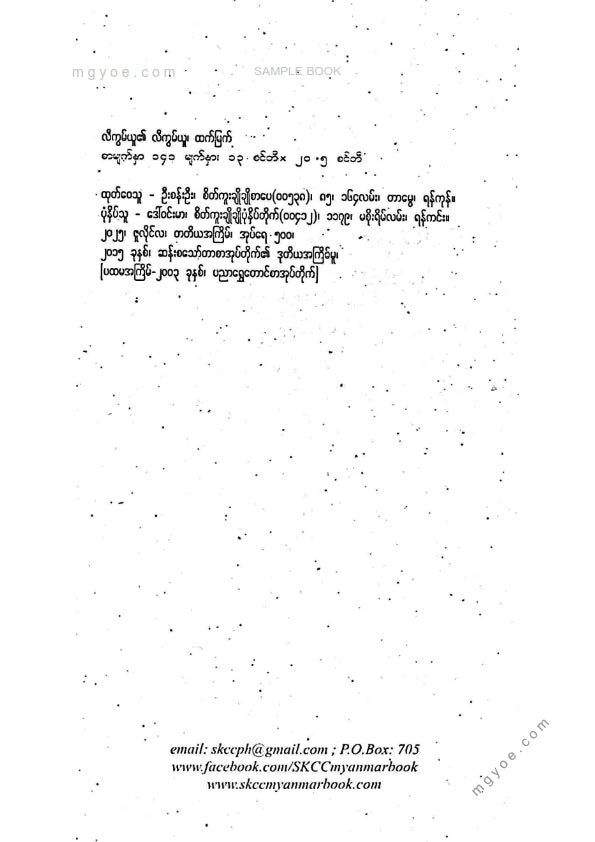 mgyoe.com
SAMPLE BOOK
လီကွမ်ယူ၏ လီကွမ်ယူ၊ ထက်မြက်
စာမျက်နှာ ၁၄၁ မျက်နှာ၊ ၁၃ စင်တီ× ၂၀.၅ စင်တီ
ထုတ်ဝေသူ - ဦးစန်းဦး၊ စိတ်ကူးချိုချိုစာပေ(၀၀၅၃၈)၊ ၈၅၊ ၁၆၄လမ်း၊ တာမွေ၊ ရန်ကုန်။
ပုံနှိပ်သူ - ဒေါ်ဝင်းမာ၊ စိတ်ကူးချိုချိုပုံနှိပ်တိုက်(၀၀၄၁၂)၊ ၁၁၇၉၊ မစိုးရိမ်လမ်း၊ ရန်ကင်း။
၂၀၂၅၊ ဇူလိုင်လ၊ တတိယအကြိမ်၊ အုပ်ရေ ၅၀၀၊
၂၀၁၅ ခုနှစ်၊ ဆန်းစသော်တာစာအုပ်တိုက်၏ ဒုတိယအကြိမ်မူ၊
[ပထမအကြိမ်-၂၀၀၃ ခုနှစ်၊ ပညာရွှေတောင်စာအုပ်တိုက်]
email: skccph@gmail.com ; P.O.Box: 705
www.facebook.com/SKCCmyanmarbook
www.skccmyanmarbook.com
mgyoe.com